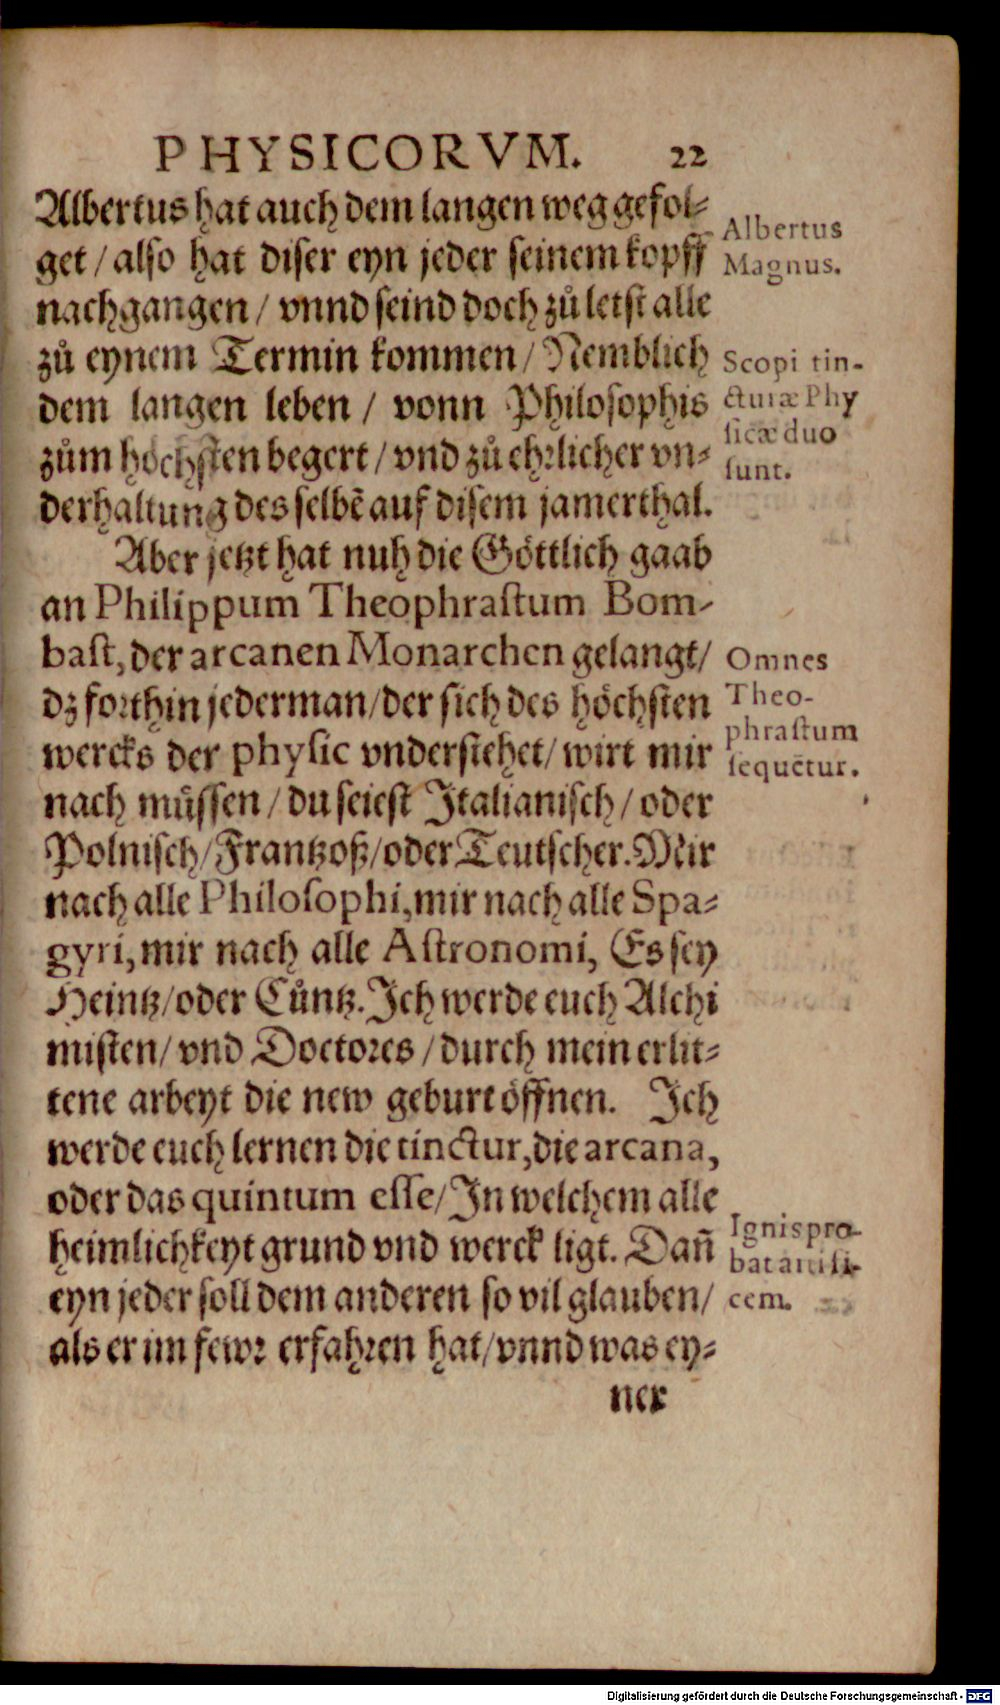 PHYSICORVM. 22
Albertus hat auch dem langen weg gefol⸗
get / also hat diser eyn jeder seinem kopff
nachgangen / vnnd seind doch zů letst alle
zů eynem Termin kommen / Nemblich
dem langen leben / vonn Philosophis
zům höchsten begert / vnd zů ehrlicher vn⸗
derhaltung des selbē auf disem jamerthal.
Aber jetzt hat nuh die Göttlich gaab
an Philippum Theophrastum Bom-
bast, der arcanen Monarchen gelangt /
dz forthin jederman / der sich des höchsten
wercks der physic vnderstehet / wirt mir
nach müssen / du seiest Italianisch / oder
Polnisch / Frantzoß / oder Teutscher. Mir
nach alle Philosophi, mir nach alle Spa⸗
gyri, mir nach alle Astronomi, Es sey
Heintz / oder Cůntz. Ich werde euch Alchi
misten / vnd Doctores / durch mein erlit⸗
tene arbeyt die new geburt öffnen. Ich
werde euch lernen die tinctur, die arcana,
oder das quintum esse / In welchem alle
heimlichkeyt grund vnd werck ligt. Dañ
eyn jeder soll dem anderen so vil glauben /
als er im fewr erfahren hat / vnnd was ey⸗
ner
Albertus
Magnus.
Scopi tin-
cturæ Phy
sicæ duo
sunt.
Omnes
Theo-
phrastum
sequētur.
Ignis pro-
bat artifi-
cem.
Digitalisierung gefördert durch die Deutsche Forschungsgemeinschaft - DFG